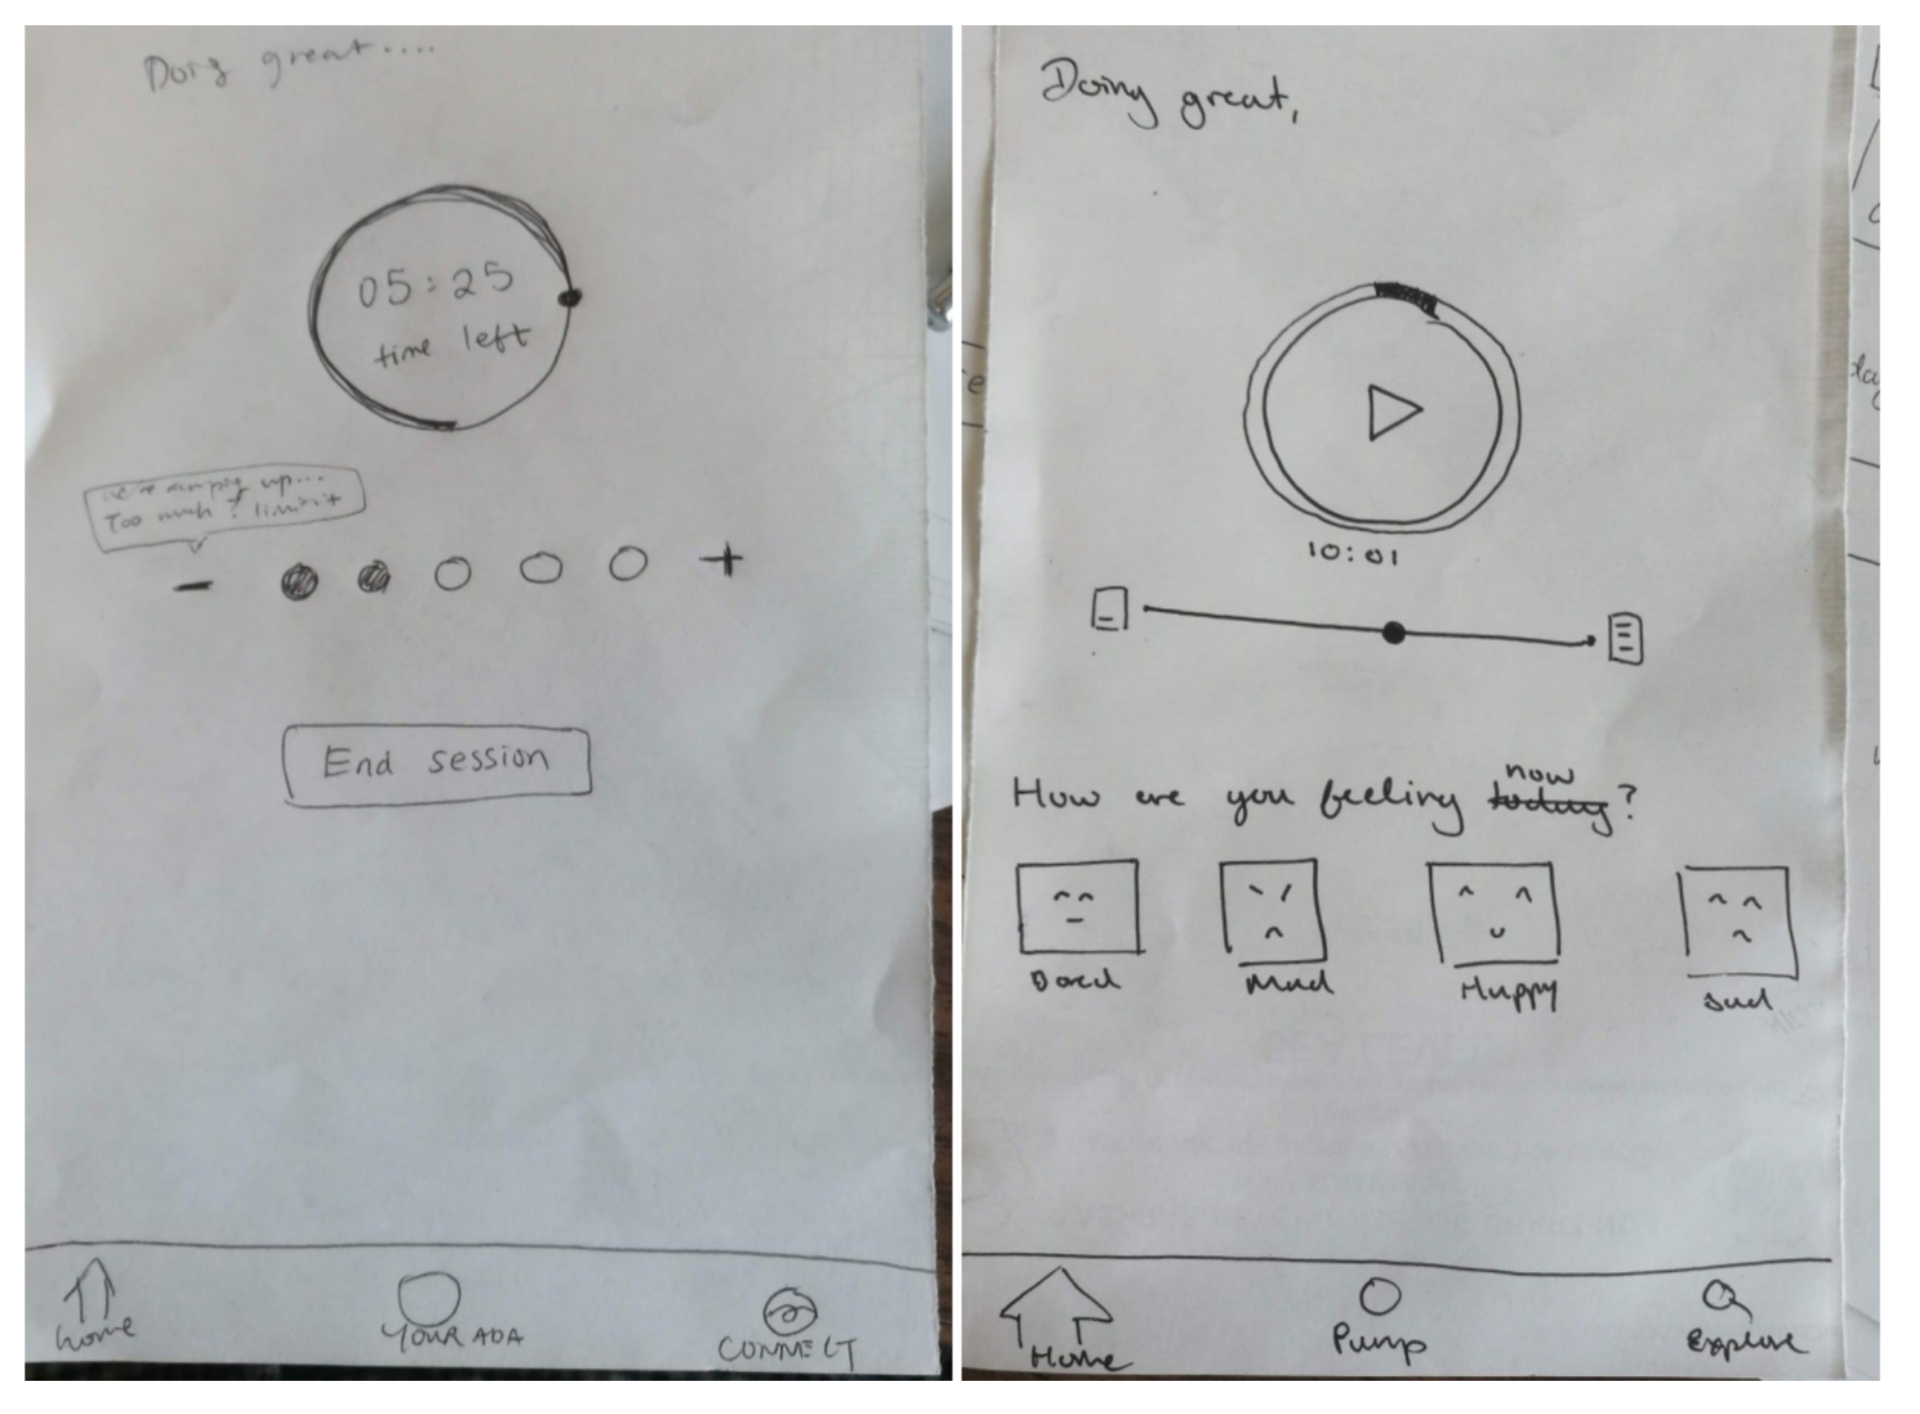 Doing great....
05:25
time left
up...
Too much? limit it
− +
End session
home
YOUR ADA
CONNECT
Doing great,
10:01
now
How are you feeling today?
Bored Mad Happy Sad
Home
Pump
Explore